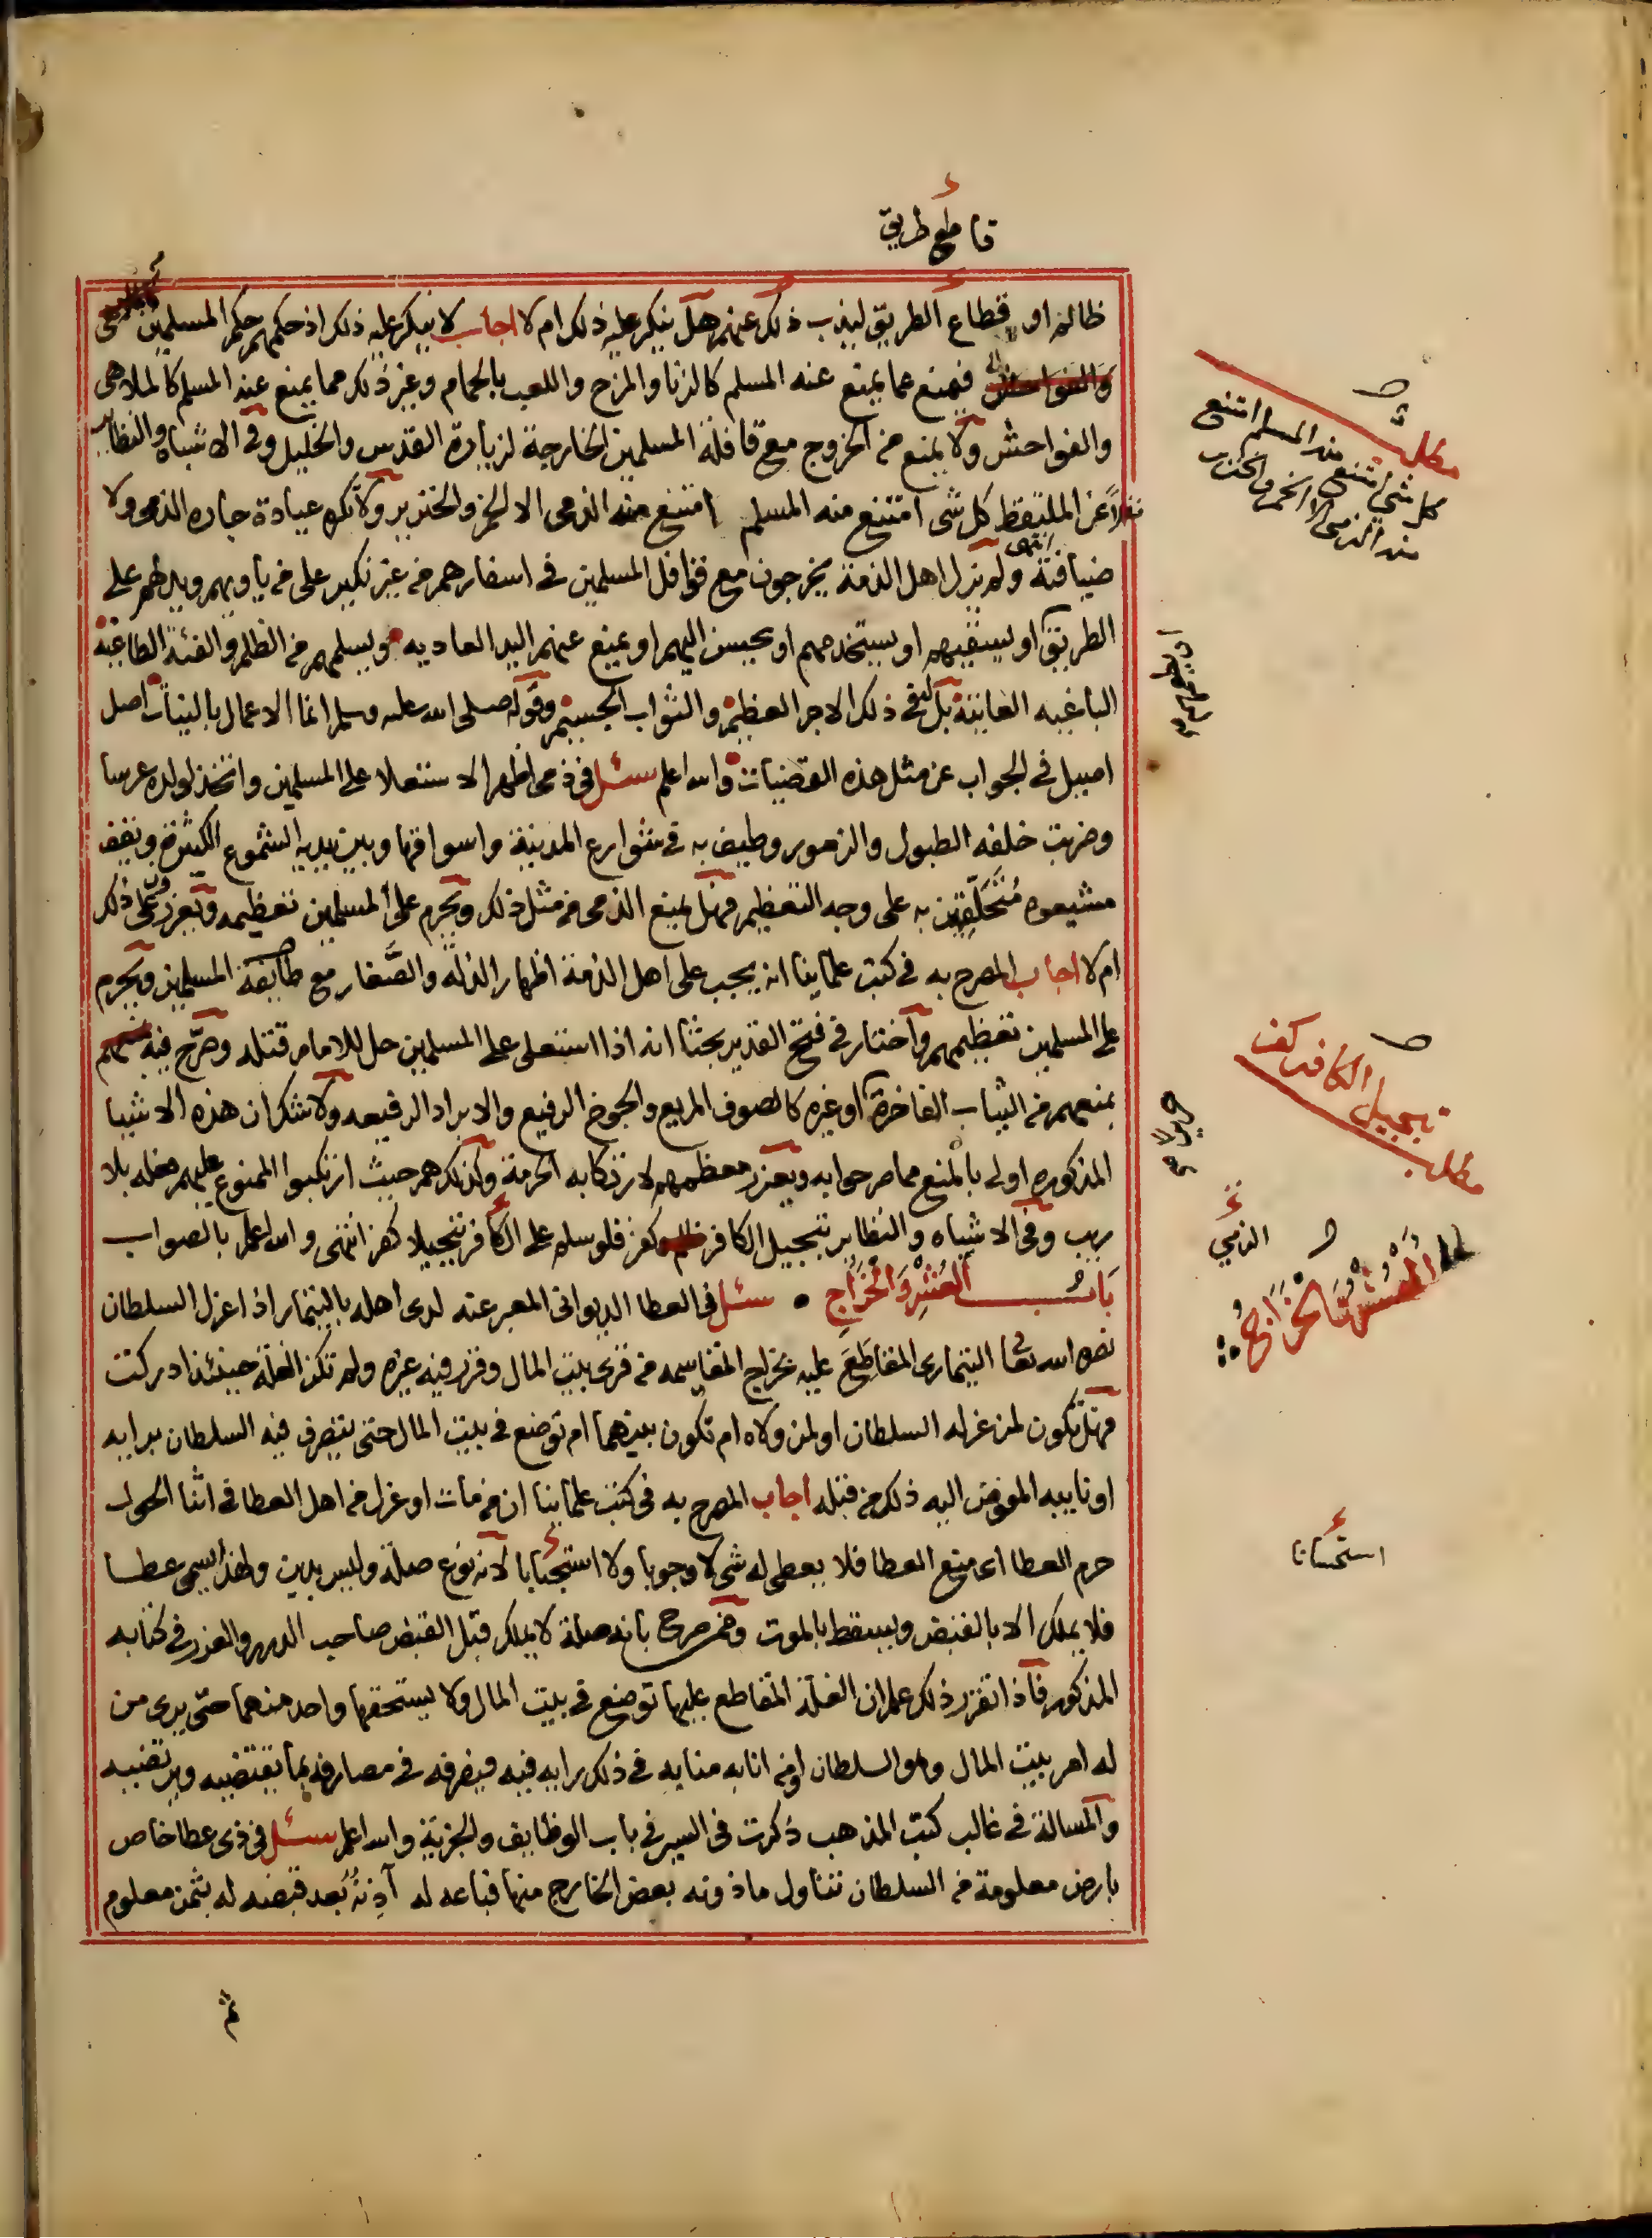 قاطع طريق
ظالم او قطاع الطريق ليذب ذلك عنهم هل ينكر عليه ذلك ام لا اجاب لا ينكر عليه ذلك اذ حكمهم حكم المسلمين
فيمنع عما يمنع عنه المسلم كالزنا والمزح واللعب بالحمام وغير ذلك مما يمنع عنه المسلم كالملاهى
والفواحش ولا يمنع من الخروج مع قافلة المسلمين الخارجية لزيارة القدس والخليل وفى الاشباه والنظاير
نقلا عن الملتقط كل شى امتنع منه المسلم امتنع منه الذمى الا الخمر والخنزير ولا تكره عيادة جاره الذمى ولا
ضيافته انتهى ولم تزل اهل الذمة يخرجون مع قوافل المسلمين فى اسفارهم من غير نكير على من ياويهم ويدلهم على
الطريق او يسقيهم او يستخدمهم او يحبسن اليهم او يمنع عنهم اليد العاديه ويسلمهم من الظلم والفئة الطاغية
الباغيه بل فى ذلك الاجر العظيم والثواب الجسيم وقوله صلى الله عليه وسلم انما الاعمال بالنيات اصل
اصيل فى الجواب عن مثل هذه القضيات والله اعلم سئل فى ذمى اظهر الاستعلا على المسلمين واتخذ لولده عرسا
وضربت خلفه الطبول والزمور وطيف به فى شوارع المدينة واسواقها وبين يديه الشموع الكثيرة ويقف
مشيعوه متحلقين به على وجه التعظيم فهل يمنع الذمى من مثل ذلك ويحرم على المسلمين تعظيمه ويعزر على ذلك
ام لا اجاب المصرح به فى كتب علماينا انه يجب على اهل الذمة اظهار الذلة والصغار مع طايفة المسلمين ويحرم
على المسلمين تعظيمهم واختار فى فتح القدير بحثا انه اذا استعلى على المسلمين حل للامام قتله وصرح فيه
بمنعهم من الثياب الفاخرة او غيره كالصوف المربع والجوخ الرفيع والابراد الرفيعه ولا شك ان هذه الاشيا
المذكوره اولى بالمنع مما صرحوا به ويعزر معظمهم لارتكابه الحرمة وكذلك هم حيث ارتكبوا الممنوع عليهم فعله بلا
ريب وفى الاشباه والنظاير تبجيل الكافر كفر فلو سلم على الكافر تبجيلا كفر انتهى والله اعلم بالصواب
باب العشر والخراج سئل فى العطا الديوانى المعبر عنه لدى اهله بالتيمار اذا عزل السلطان
نصره الله تعا التيمارى المقاطع عليه بخراج المقاسمه من قرى بيت المال وقرر فيه غيره ولم تكن الغلة حينئذ ادركت
فهل تكون لمن عزله السلطان او لمن ولاه ام تكون بينهما ام توضع فى بيت المال حتى يتصرف فيه السلطان برايه
او نايبه المفوض اليه ذلك من قبله اجاب المصرح به فى كتب علماينا ان من مات او عزل من اهل العطا فى اثنا الحول
حرم العطا اى منع العطا فلا يعطى له شى لا وجوبا ولا استحبابا لانه نوع صلة وليس بدين ولهذا يسمى عطا
فلا يملك الا بالقبض ويسقط بالموت وممن صرح بانه صلة لا يملك قبل القبض صاحب الدرر والغرر فى كتابه
المذكور فاذا تقرر ذلك علم ان الغلة المقاطع عليها توضع فى بيت المال ولا يستحقها واحد منهما حتى يرى من
له امر بيت المال وهو السلطان او من انابه منابه فى ذلك رايه فيه فيصرفه فى مصارفه بما يقتضيه ويرتضيه
والمسالة فى غالب كتب المذهب ذكرت فى السير فى باب الوظايف والجزية والله اعلم سئل فى ذى عطا خاص
بارض معلومة من السلطان تناول ماذونه بعض الخارج منها فباعه له آذنه بعد قبضه له بثمن معلوم
مطلب
كل شى امتنع منه المسلم امتنع
منه الذمى الا الخمر والخنزير
تبجيل الكافر كفر
مطلب
الذمي
العشر والخراج
استحسانا